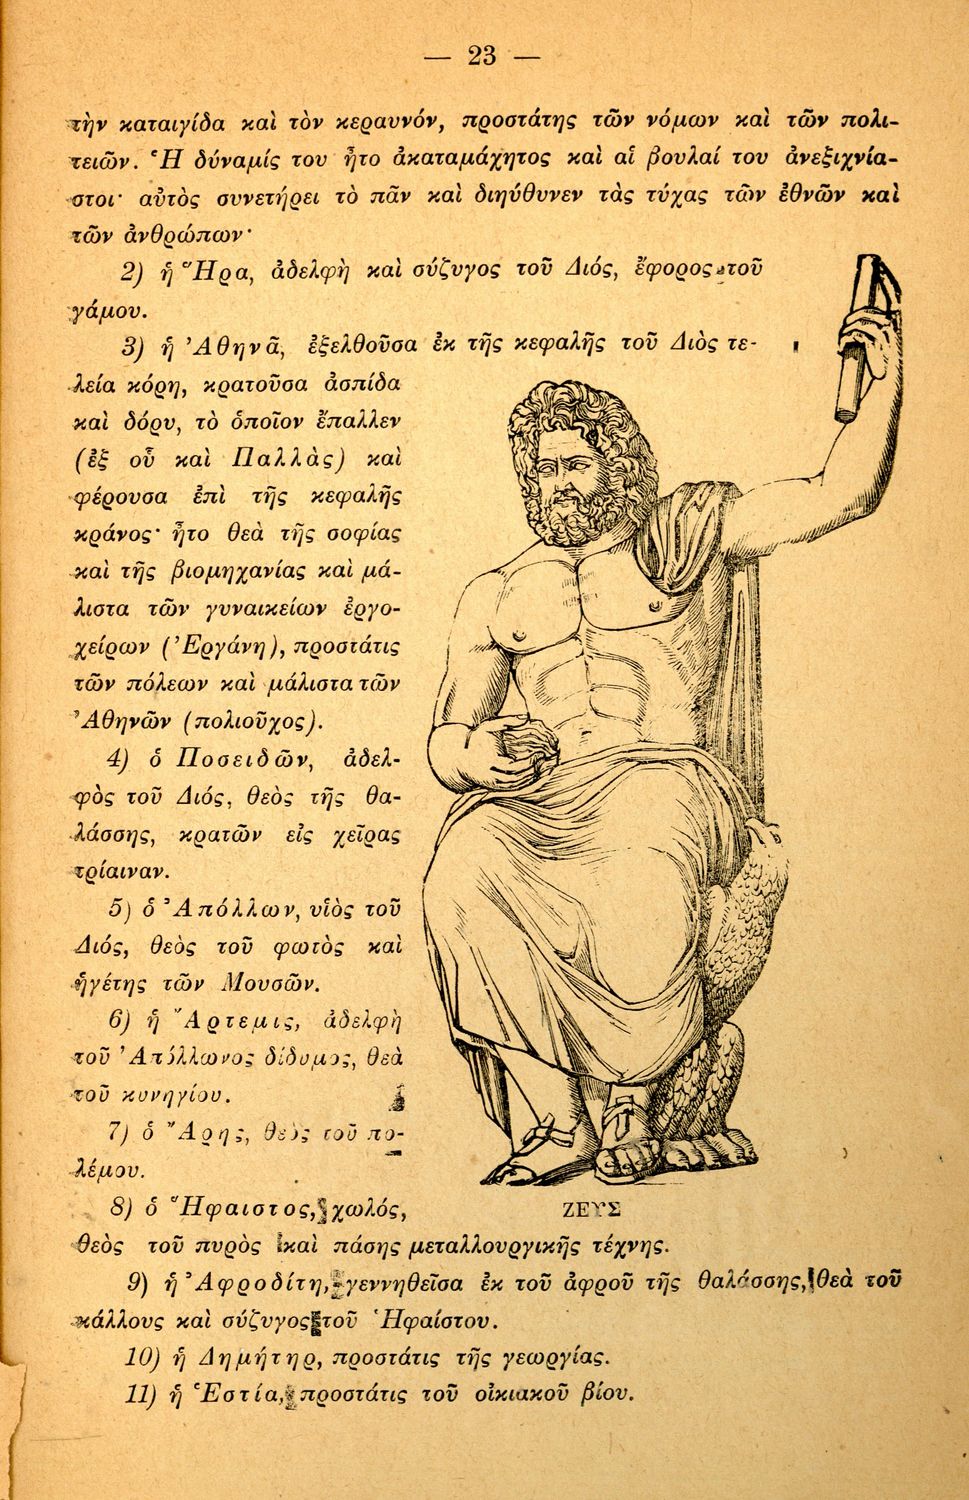 — 23 —
τὴν καταιγίδα καὶ τὸν κεραυνόν, προστάτης τῶν νόμων καὶ τῶν πολι-
τειῶν. Ἡ δύναμίς του ἦτο ἀκαταμάχητος καὶ αἱ βουλαί του ἀνεξιχνία-
στοι· αὐτὸς συνετήρει τὸ πᾶν καὶ διηύθυνεν τὰς τύχας τῶν ἐθνῶν καὶ
τῶν ἀνθρώπων·
2) ἡ Ἥρα, ἀδελφὴ καὶ σύζυγος τοῦ Διός, ἔφορος τοῦ
γάμου.
3) ἡ Ἀθηνᾶ, ἐξελθοῦσα ἐκ τῆς κεφαλῆς τοῦ Διὸς τε-
λεία κόρη, κρατοῦσα ἀσπίδα
καὶ δόρυ, τὸ ὁποῖον ἔπαλλεν
(ἐξ οὗ καὶ Παλλὰς) καὶ
φέρουσα ἐπὶ τῆς κεφαλῆς
κράνος· ἦτο θεὰ τῆς σοφίας
καὶ τῆς βιομηχανίας καὶ μά-
λιστα τῶν γυναικείων ἐργο-
χείρων (Ἐργάνη), προστάτις
τῶν πόλεων καὶ μάλιστα τῶν
Ἀθηνῶν (πολιοῦχος).
4) ὁ Ποσειδῶν, ἀδελ-
φὸς τοῦ Διός, θεὸς τῆς θα-
λάσσης, κρατῶν εἰς χεῖρας
τρίαιναν.
5) ὁ Ἀπόλλων, υἱὸς τοῦ
Διός, θεὸς τοῦ φωτὸς καὶ
ἡγέτης τῶν Μουσῶν.
6) ἡ Ἄρτεμις, ἀδελφὴ
τοῦ Ἀπόλλωνος δίδυμος, θεὰ
τοῦ κυνηγίου.
7) ὁ Ἄρης, θεὸς τοῦ πο-
λέμου.
8) ὁ Ἥφαιστος, χωλός,
ΖΕΥΣ
θεὸς τοῦ πυρὸς καὶ πάσης μεταλλουργικῆς τέχνης.
9) ἡ Ἀφροδίτη, γεννηθεῖσα ἐκ τοῦ ἀφροῦ τῆς θαλάσσης, θεὰ τοῦ
κάλλους καὶ σύζυγος τοῦ Ἡφαίστου.
10) ἡ Δημήτηρ, προστάτις τῆς γεωργίας.
11) ἡ Ἑστία, προστάτις τοῦ οἰκιακοῦ βίου.